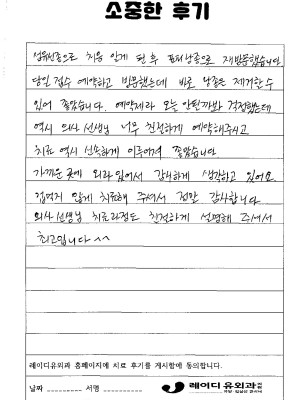 소중한 후기
섬유선종으로 치음 알게 된 후 표피낭종으로 재방문했습니다
당일 접수 예약하고 방문했는데 바로 낭종은 제거할 수
있어 좋았습니다. 예약제라 오늘 안될까봐 걱정했는데
역시 의사 선생님 너무 친절하게 예약해주시고
치료 역시 신속하게 이루어져 좋았습니다
가까운 곳에 외과 있어서 감사하게 생각하고 있어요
겁먹지 않게 치료해 주셔서 정말 감사합니다
의사 선생님 치료과정도 친절하게 설명해 주셔서
최고입니다 ^^
레이디유외과 홈페이지에 치료 후기를 게시함에 동의합니다.
날짜 _________ 서명 _________ 레이디유외과